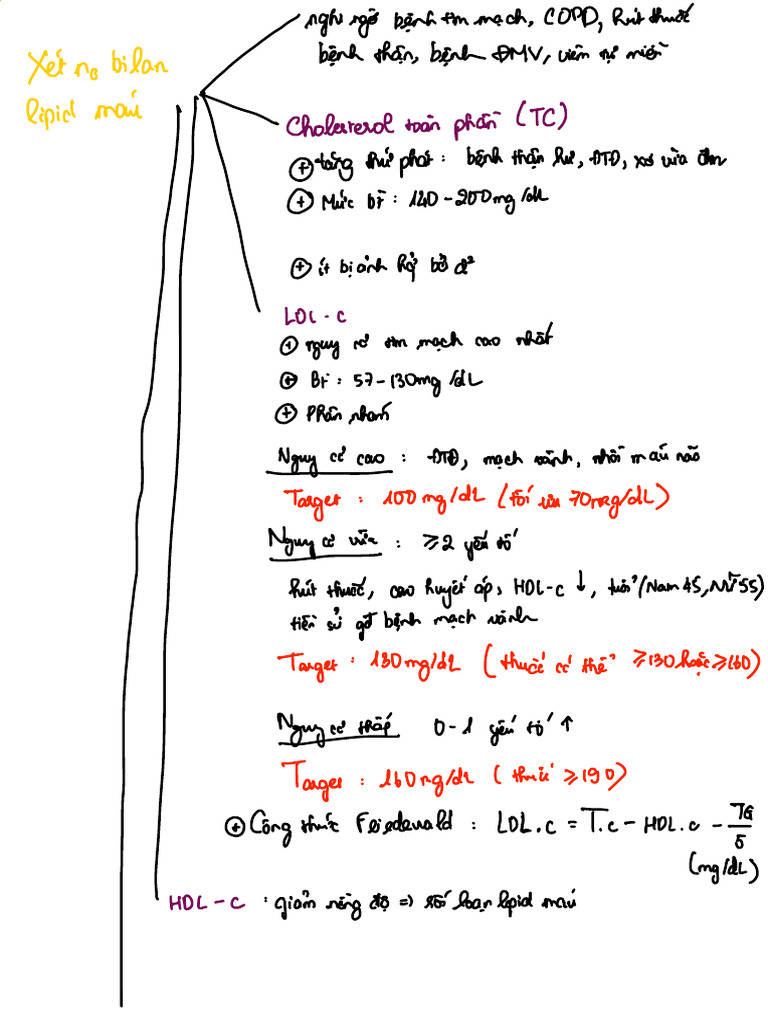 Xét no bilan
lipid máu
nghi ngờ bệnh tim mạch, COPD, hút thuốc
bệnh thận, bệnh ĐMV, viêm tự miễn
Cholesterol toàn phần (TC)
⊕ tăng thứ phát : bệnh thận hư, ĐTĐ, xơ vữa đm
⊕ Mức bt : 140 - 200mg/dL
⊕ ít bị ảnh hg bởi d²
LDL - C
⊕ nguy cơ tim mạch cao nhất
⊕ Bt : 57 - 130mg/dL
⊕ Phân nhóm
Nguy cơ cao : ĐTĐ, mạch vành, nhồi máu não
Target : 100mg/dL (tối ưu 70mg/dL)
Nguy cơ vừa : ≥2 yếu tố
hút thuốc, cao huyết áp, HDL-C ↓, tuổi (Nam 45, Nữ 55)
tiền sử gđ bệnh mạch vành
Target : 130mg/dL (thuốc có thể ≥130 hoặc ≥160)
Nguy cơ thấp 0-1 yếu tố ↑
Target : 160mg/dL (thuốc ≥190)
⊕ Công thức Friedewald : LDL.c = T.c - HDL.c - TG/5
(mg/dL)
HDL - C : giảm nồng độ => rối loạn lipid máu